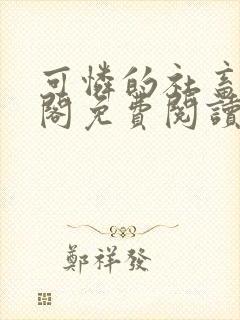 可憐的社畜
閣免費閱讀
鄭祥發